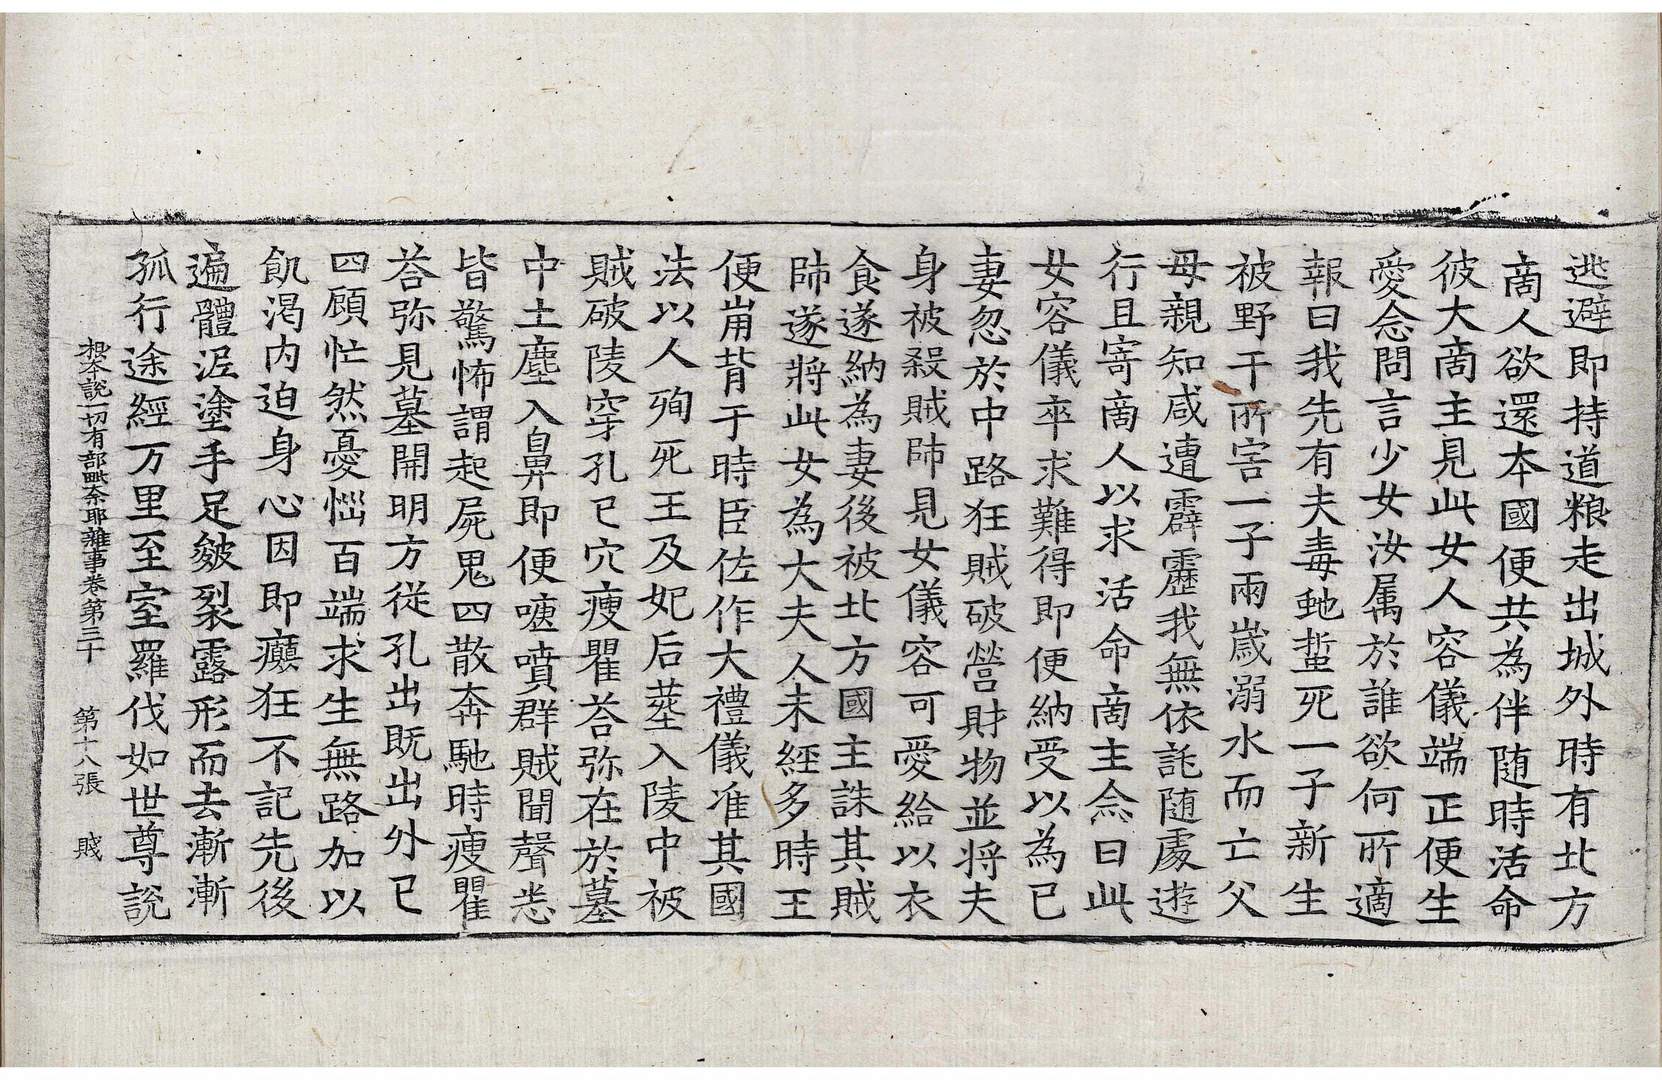 逃避即持道粮走出城外時有北方
啇人欲還本國便共為伴随時活命
彼大啇主見此女人容儀端正便生
愛念問言少女汝属於誰欲何所適
報曰我先有夫毒虵螫死一子新生
被野干所害一子兩歲溺水而亡父
母親知咸遭霹靂我無依託随處遊
行且寄啇人以求活命啇主念曰此
女容儀卒求難得即便納受以為已
妻忽於中路狂賊破營財物並将夫
身被殺賊帥見女儀容可愛給以衣
食遂納為妻後被北方國主誅其賊
帥遂將此女為大夫人未經多時王
便崩背于時臣佐作大禮儀准其國
法以人殉死王及妃后葬入陵中被
賊破陵穿孔已穴瘦瞿荅弥在於墓
中土塵入鼻即便嚏噴群賊聞聲悉
皆驚怖謂起屍鬼四散奔馳時瘦瞿
荅弥見墓開明方從孔出既出外已
四顧忙然憂惱百端求生無路加以
飢渴內迫身心因即癲狂不記先後
遍體泥塗手足皴裂露形而去漸漸
孤行途經万里至室羅伐如世尊説
根本說一切有部毗奈耶雜事卷第三十 第十八張 賤